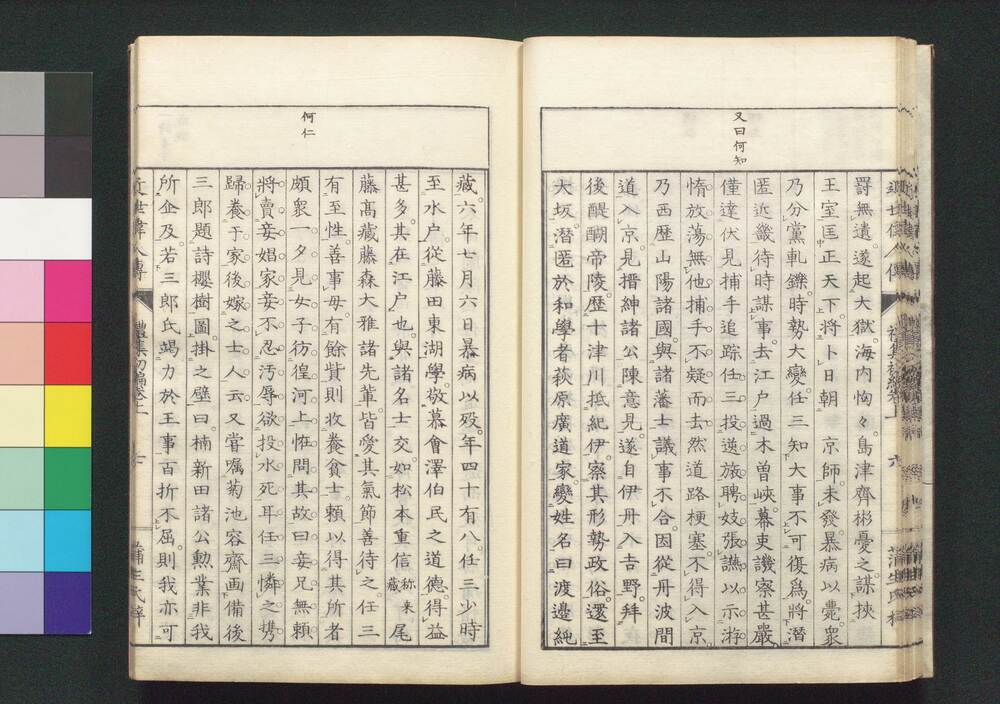 又曰何知
罸無遺。遂起大獄。海内恟々。島津齊彬憂之。謀挾
王室匡正天下。將卜日朝　京師。未發。暴病以薨。衆
乃分黨軋鑠。時勢大變。任三知大事不可復爲。將潛
匿近畿待時謀事。去江戸過木曽峽。幕吏譏察甚嚴。
僅達伏見捕手追踪。任三投逆旅聘妓張讌以示游
惰放蕩無他。捕手不疑而去。然道路梗塞。不得入京。
乃西歴山陽諸國。與諸藩士議事不合。因從丹波間
道入京。見搢紳諸公陳意見。遂自伊丹入吉野。拜
後醍醐帝陵。歴十津川抵紀伊。察其形勢政俗。還至
大坂。潛匿於和學者萩原廣道家。變姓名曰渡邉純
何仁
藏。六年七月六日暴病以歿。年四十有八。任三少時
至水户。從藤田東湖學。敬慕會澤伯民之道德。得益
甚多。其在江户也。與諸名士交。如松本重信称来藏尾
藤高蔵藤森大雅諸先輩。皆愛其氣節善待之。任三
有至性。善事母。有餘貲則收養貧士。頼以得其所者
頗衆。一夕見女子彷徨河上。恠問其故。曰妾兄無頼
將賣妾娼家。妾不忍汚辱。欲投水死耳。任三憐之。携
歸養于家。後嫁之士人云。又嘗嘱菊池容齋画備後
三郎題詩櫻樹圖。掛之壁曰。楠新田諸公勲業非我
所企及。若三郎氏竭力於王事百折不屈。則我亦可
近世偉人傳
禮集初編巻上
蒲生氏梓